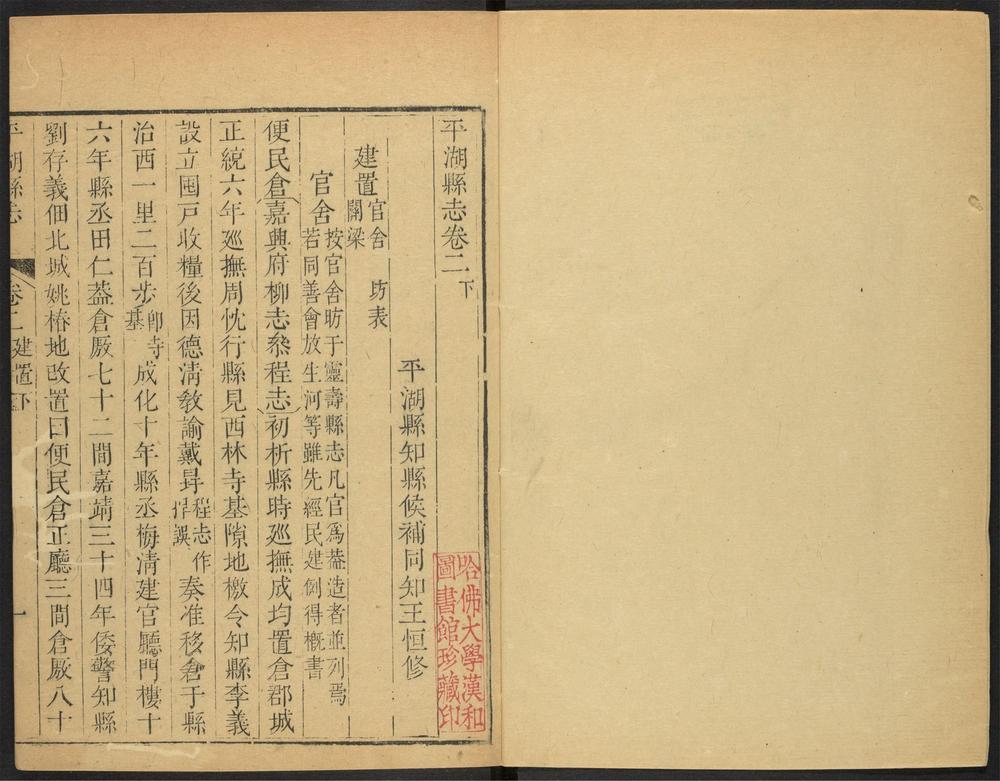 平湖縣志卷二下
平湖縣知縣候補同知王恒修
建置官舍 坊表
關梁
官舍按官舍昉于靈壽縣志凡官爲葢造者並列焉
若同善會放生河等雖先經民建例得槪書
便民倉嘉興府柳志叅程志初析縣時廵撫成均置倉郡城
正統六年廵撫周忱行縣見西林寺基隙地檄令知縣李義
設立囤戶收糧後因德淸敎諭戴㝵程志作
㝵誤奏准移倉于縣
治西一里二百步卽寺
基成化十年縣丞梅淸建官廳門樓十
六年縣丞田仁葢倉厫七十二間嘉靖三十四年倭警知縣
劉存義佃北城姚椿地改置曰便民倉正廳三間倉厫八十
平湖縣志 卷二建置下 一
哈佛大學漢和
圖書館珍藏印